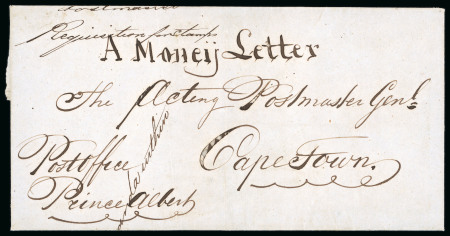 Postmaster
Requisition for stamps
A Money Letter
The Acting Postmaster Genl.
Cape Town.
Post Office
Prince Albert